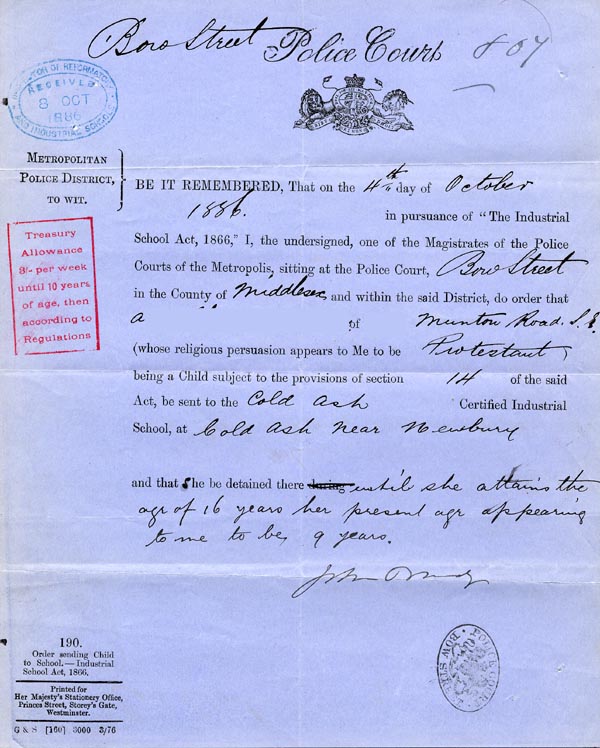 Bow Street Police Court 807
INSPECTOR OF REFORMATORY
RECEIVED
8 OCT
1886
AND INDUSTRIAL SCHOOLS
METROPOLITAN
POLICE DISTRICT,
TO WIT.
BE IT REMEMBERED, That on the 4th day of October
1886. in pursuance of "The Industrial
School Act, 1866," I, the undersigned, one of the Magistrates of the Police
Courts of the Metropolis, sitting at the Police Court, Bow Street
in the County of Middlesex and within the said District, do order that
a of Munton Road. S.E.
(whose religious persuasion appears to Me to be Protestant)
being a Child subject to the provisions of section 14 of the said
Act, be sent to the Cold Ash Certified Industrial
School, at Cold Ash near Newbury
and that She be detained there during until she attains the
age of 16 years her present age appearing
to me to be 9 years.
Treasury
Allowance
3/- per week
until 10 years
of age, then
according to
Regulations
190.
Order sending Child
to School.—Industrial
School Act, 1866.
Printed for
Her Majesty's Stationery Office,
Princes Street, Storey's Gate,
Westminster.
G & S [160] 3000 3/76
POLICE COURT
BOW STREET